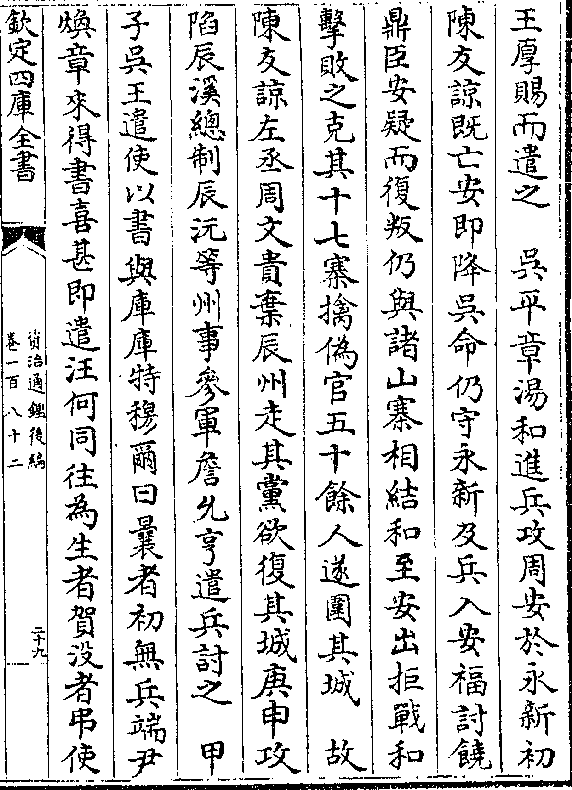 王厚賜而遣之　吳平章湯和進兵攻周安於永新初
陳友諒既亡安即降吳命仍守永新及兵入安福討饒
鼎臣安疑而復叛仍與諸山寨相結和至安出拒戰和
擊敗之克其十七寨擒偽官五十餘人遂圍其城　故
陳友諒左丞周文貴棄辰州走其黨欲復其城庚申攻
陷辰溪總制辰沅等州事參軍詹允亨遣兵討之　甲
子吳王遣使以書與庫庫特穆爾曰曩者初無兵端尹
煥章來得書喜甚即遣汪何同往為生者賀没者弔使
欽定四庫全書
資治通鑑後編
卷一百八十二
二十九